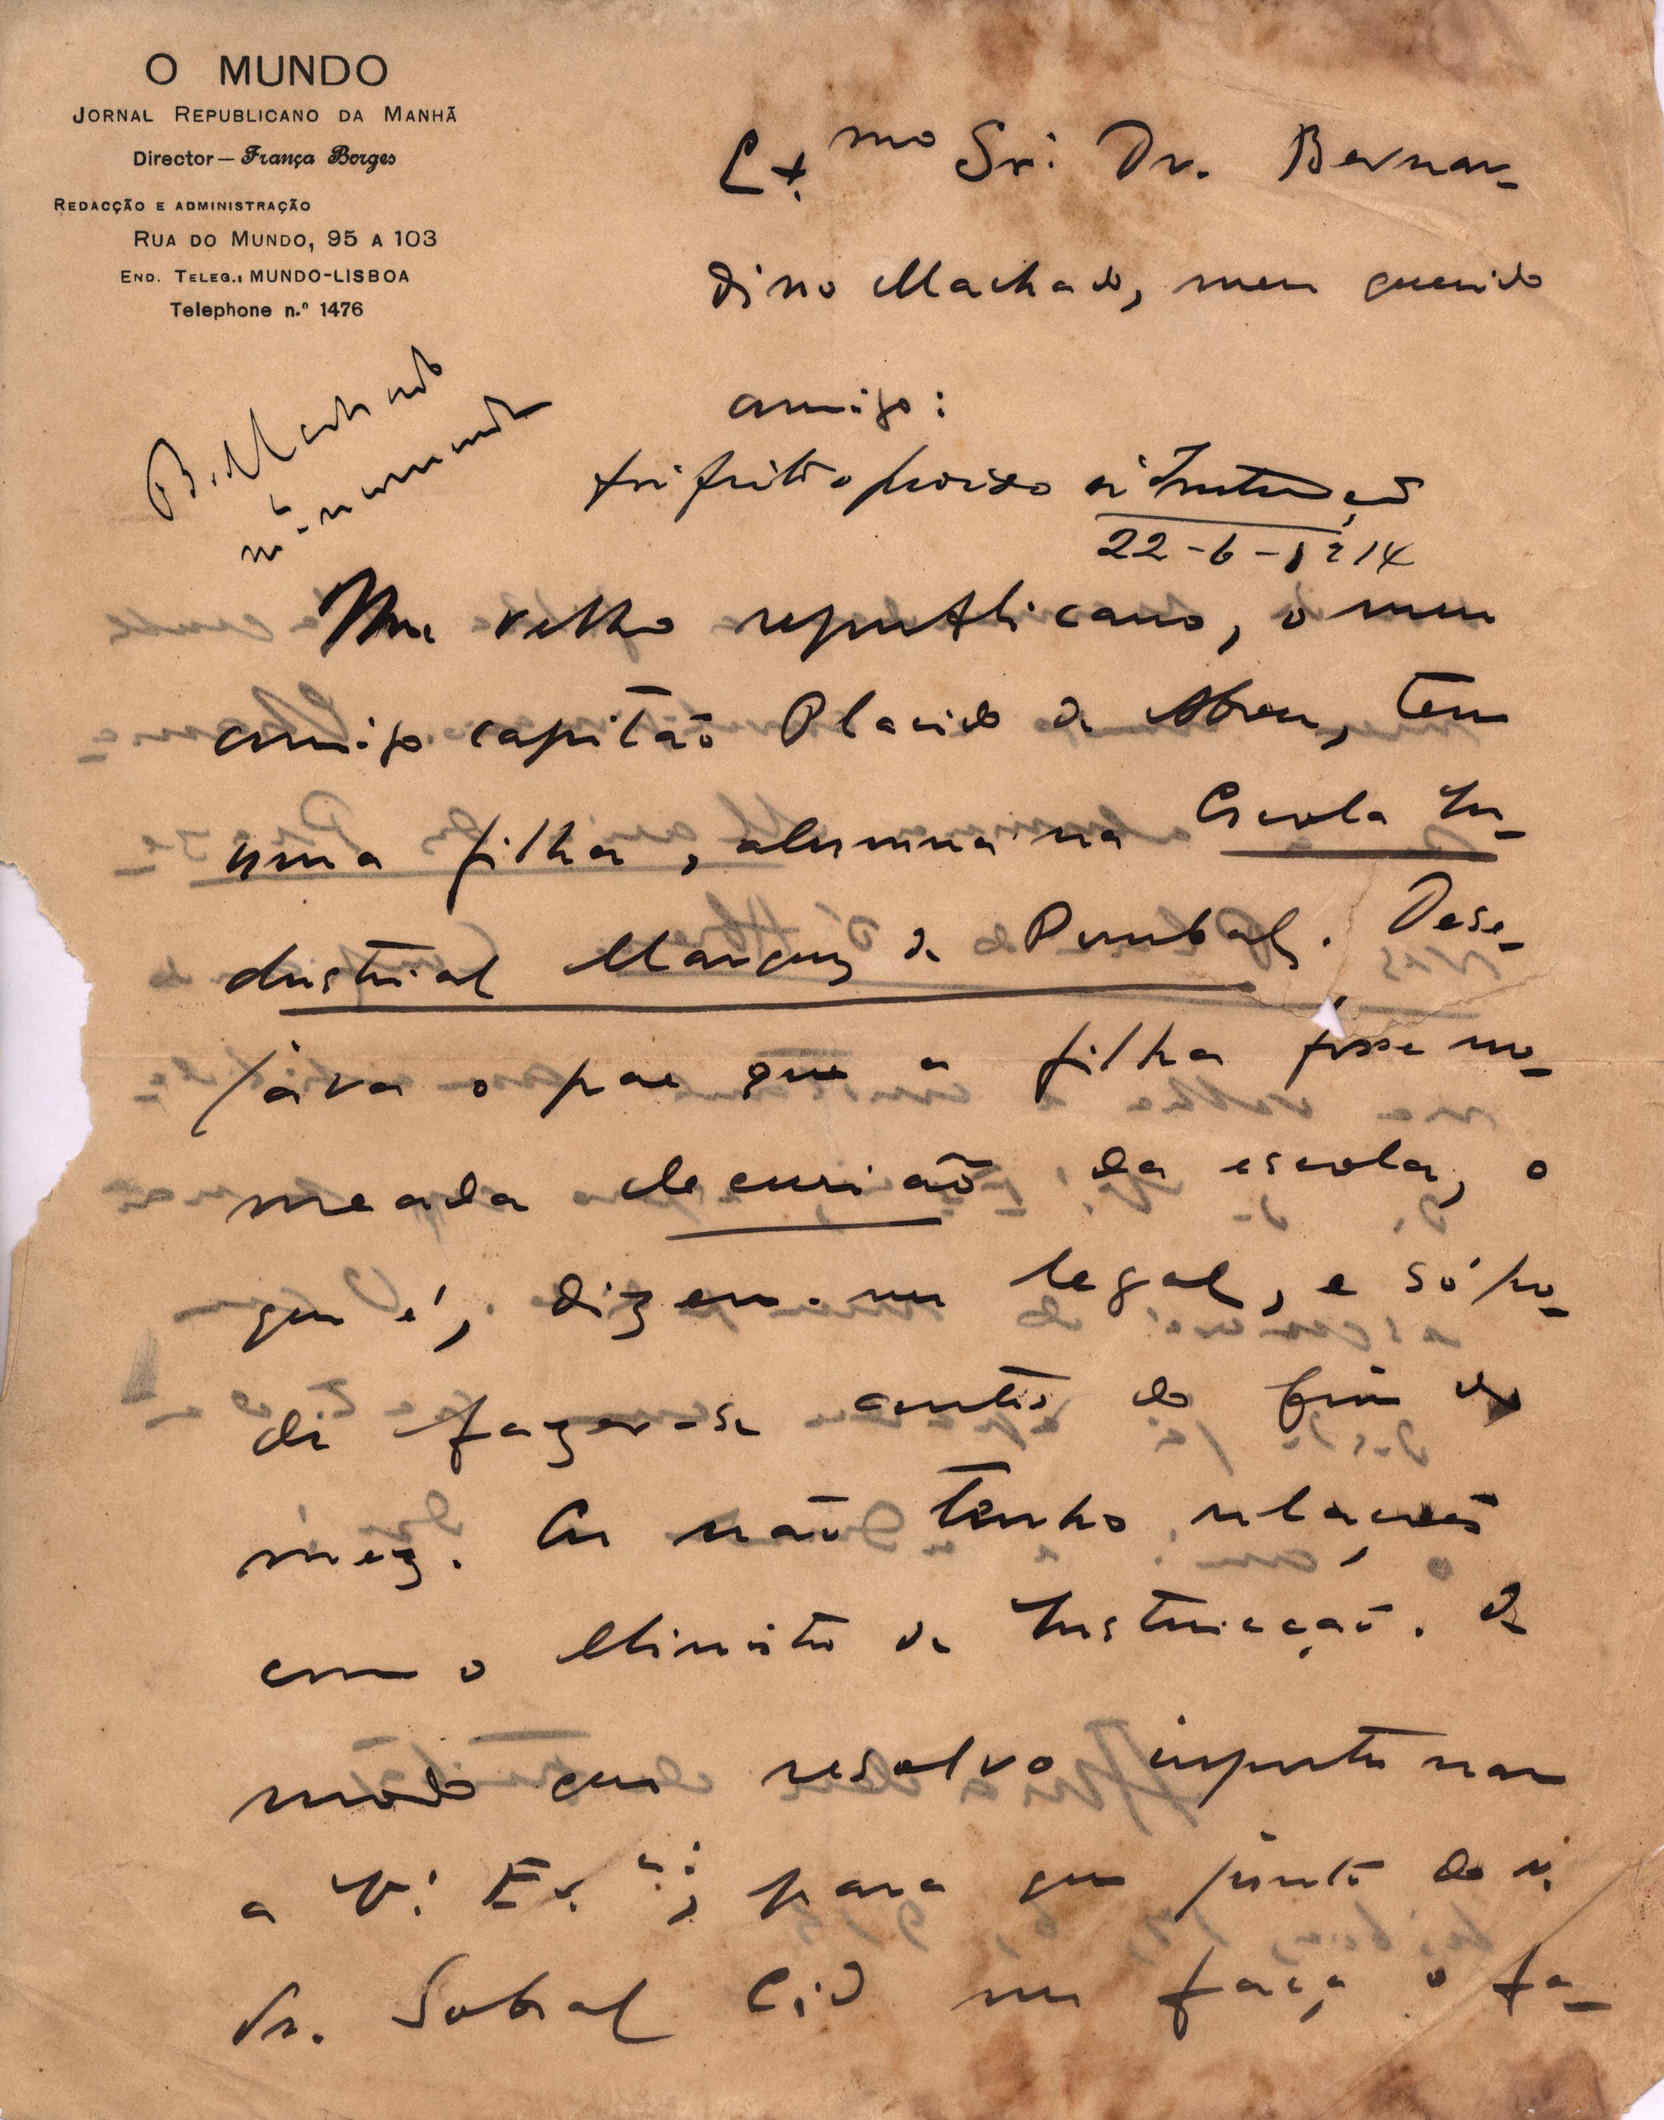 O MUNDO
JORNAL REPUBLICANO DA MANHÃ
Director — França Borges
REDACÇÃO E ADMINISTRAÇÃO
RUA DO MUNDO, 95 A 103
END. TELEG.: MUNDO-LISBOA
Telephone n.º 1476
Ex.mo Sr. Dr. Bernar-
dino Machado, meu querido
amigo:
B. Machado
foi feito o pedido á Instrucção
22-6-914
Um velho republicano, o meu
amigo capitão Placido de Abreu, tem
uma filha, alumna na Escola In-
dustrial Marquez de Pombal. Dese-
java o pae que a filha fosse no-
meada decurião da escola, o
que é, dizem-me legal, e só po-
de fazer-se antes do fim do
mez. Eu não tenho relações
com o Ministro de Instrucção. De
modo que resolvo importunar
a V. Ex.ª, para que junto do
Dr. Sobral Cid me faça o fa-